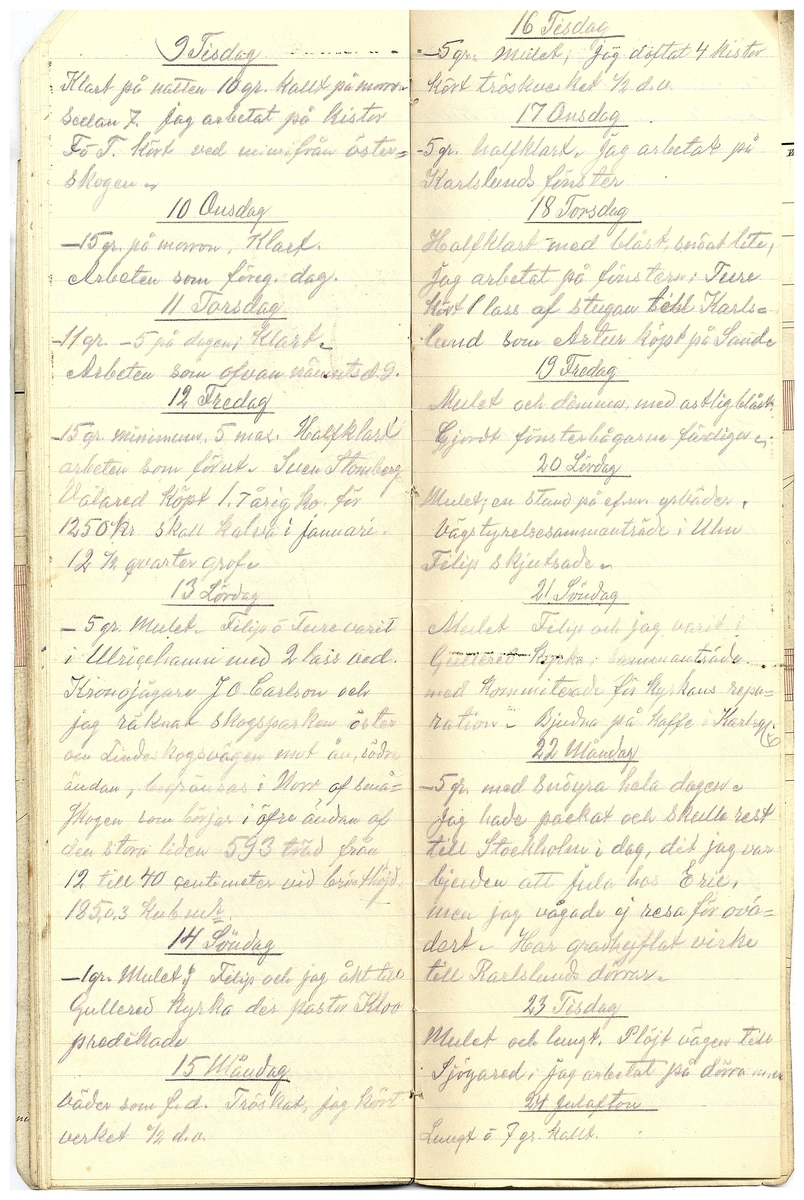 9 Tisdag
Klart på natten 10 gr. kallt på morr.
sedan 7. jag arbetat på kistor
Fö T. kört ved m.m. från öster=
skogen
10 Onsdag
-15 gr. på morron, Klart.
Arbeten som föreg. dag.
11 Torsdag
-11 gr. -5 på dagen; Klart
Arbeten som ofvan nämnts d. 9.
12 Fredag
-15 gr. minimum, 5 max. Halfklart
arbeten som förut. Sven Stomberg
Välared köpt 1. 7 årig ko. för
1250 Kr. skall kalva i januari.
12 1/2 qvarter grof.
13 Lördag
-5 gr. Mulet. Filip o Ture varit
i Ulricehamn med 2 lass ved.
Kronojägare J O Carlson och
jag räknat skogsparken öster
om Lindeskogsvägen mot ån, södra
ändan, begränsas i Norr af små=
skogen som börjar i öfre ändan af
den stora liden 593 träd från
12 till 40 centimeter vid brösthöjd.
185,0,3 kubm
14 Söndag
-1 gr. Mulet; Filip och jag åkt till
Gullered kyrka der pastor Kloo
predikade
15 Måndag
Väder som f.d. Tröskat, jag kört
verket 1/2 d.v.
16 Tisdag
-5 gr. Mulet; Jag doftat 4 kistor
kört tröskverket 1/2 d.v.
17 Onsdag
-5 gr. halfklart. Jag arbetat på
Karlslunds fönster
18 Torsdag
Halfklart med blåst, snöat lite,
jag arbetat på fönstern; Ture
kört 1 lass af stugan till Karls=
lund som Artur köpt på Sand
19 Fredag
Mulet och dimma, med ostlig blåst.
Gjordt fönsterbågarne färdiga
20 Lördag
Mulet; en stund på efm. yrväder,
Vägstyrelsesammanträde i Ulm
Filip skjutsade
21 Söndag
Mulet Filip och jag varit i
Gullered Kyrka; sammanträde
med Kommiterade för kyrkans repa=
ration. Bjudna på kaffe i
22 Måndag
-5 gr. med snöyra hela dagen.
Jag hade packat och skulle rest
till Stockholm i dag, dit jag var
bjuden att jula hos Eric,
men jag vågade ej resa för ovä=
dert. Har gradhyflat virke
till Karlslunds dörrar.
23 Tisdag
Mulet och lungt. Plöjt vägen till
Sjögared; jag arbetat på dörra m.m
24 Julafton
Lungt o 7 gr. kallt.